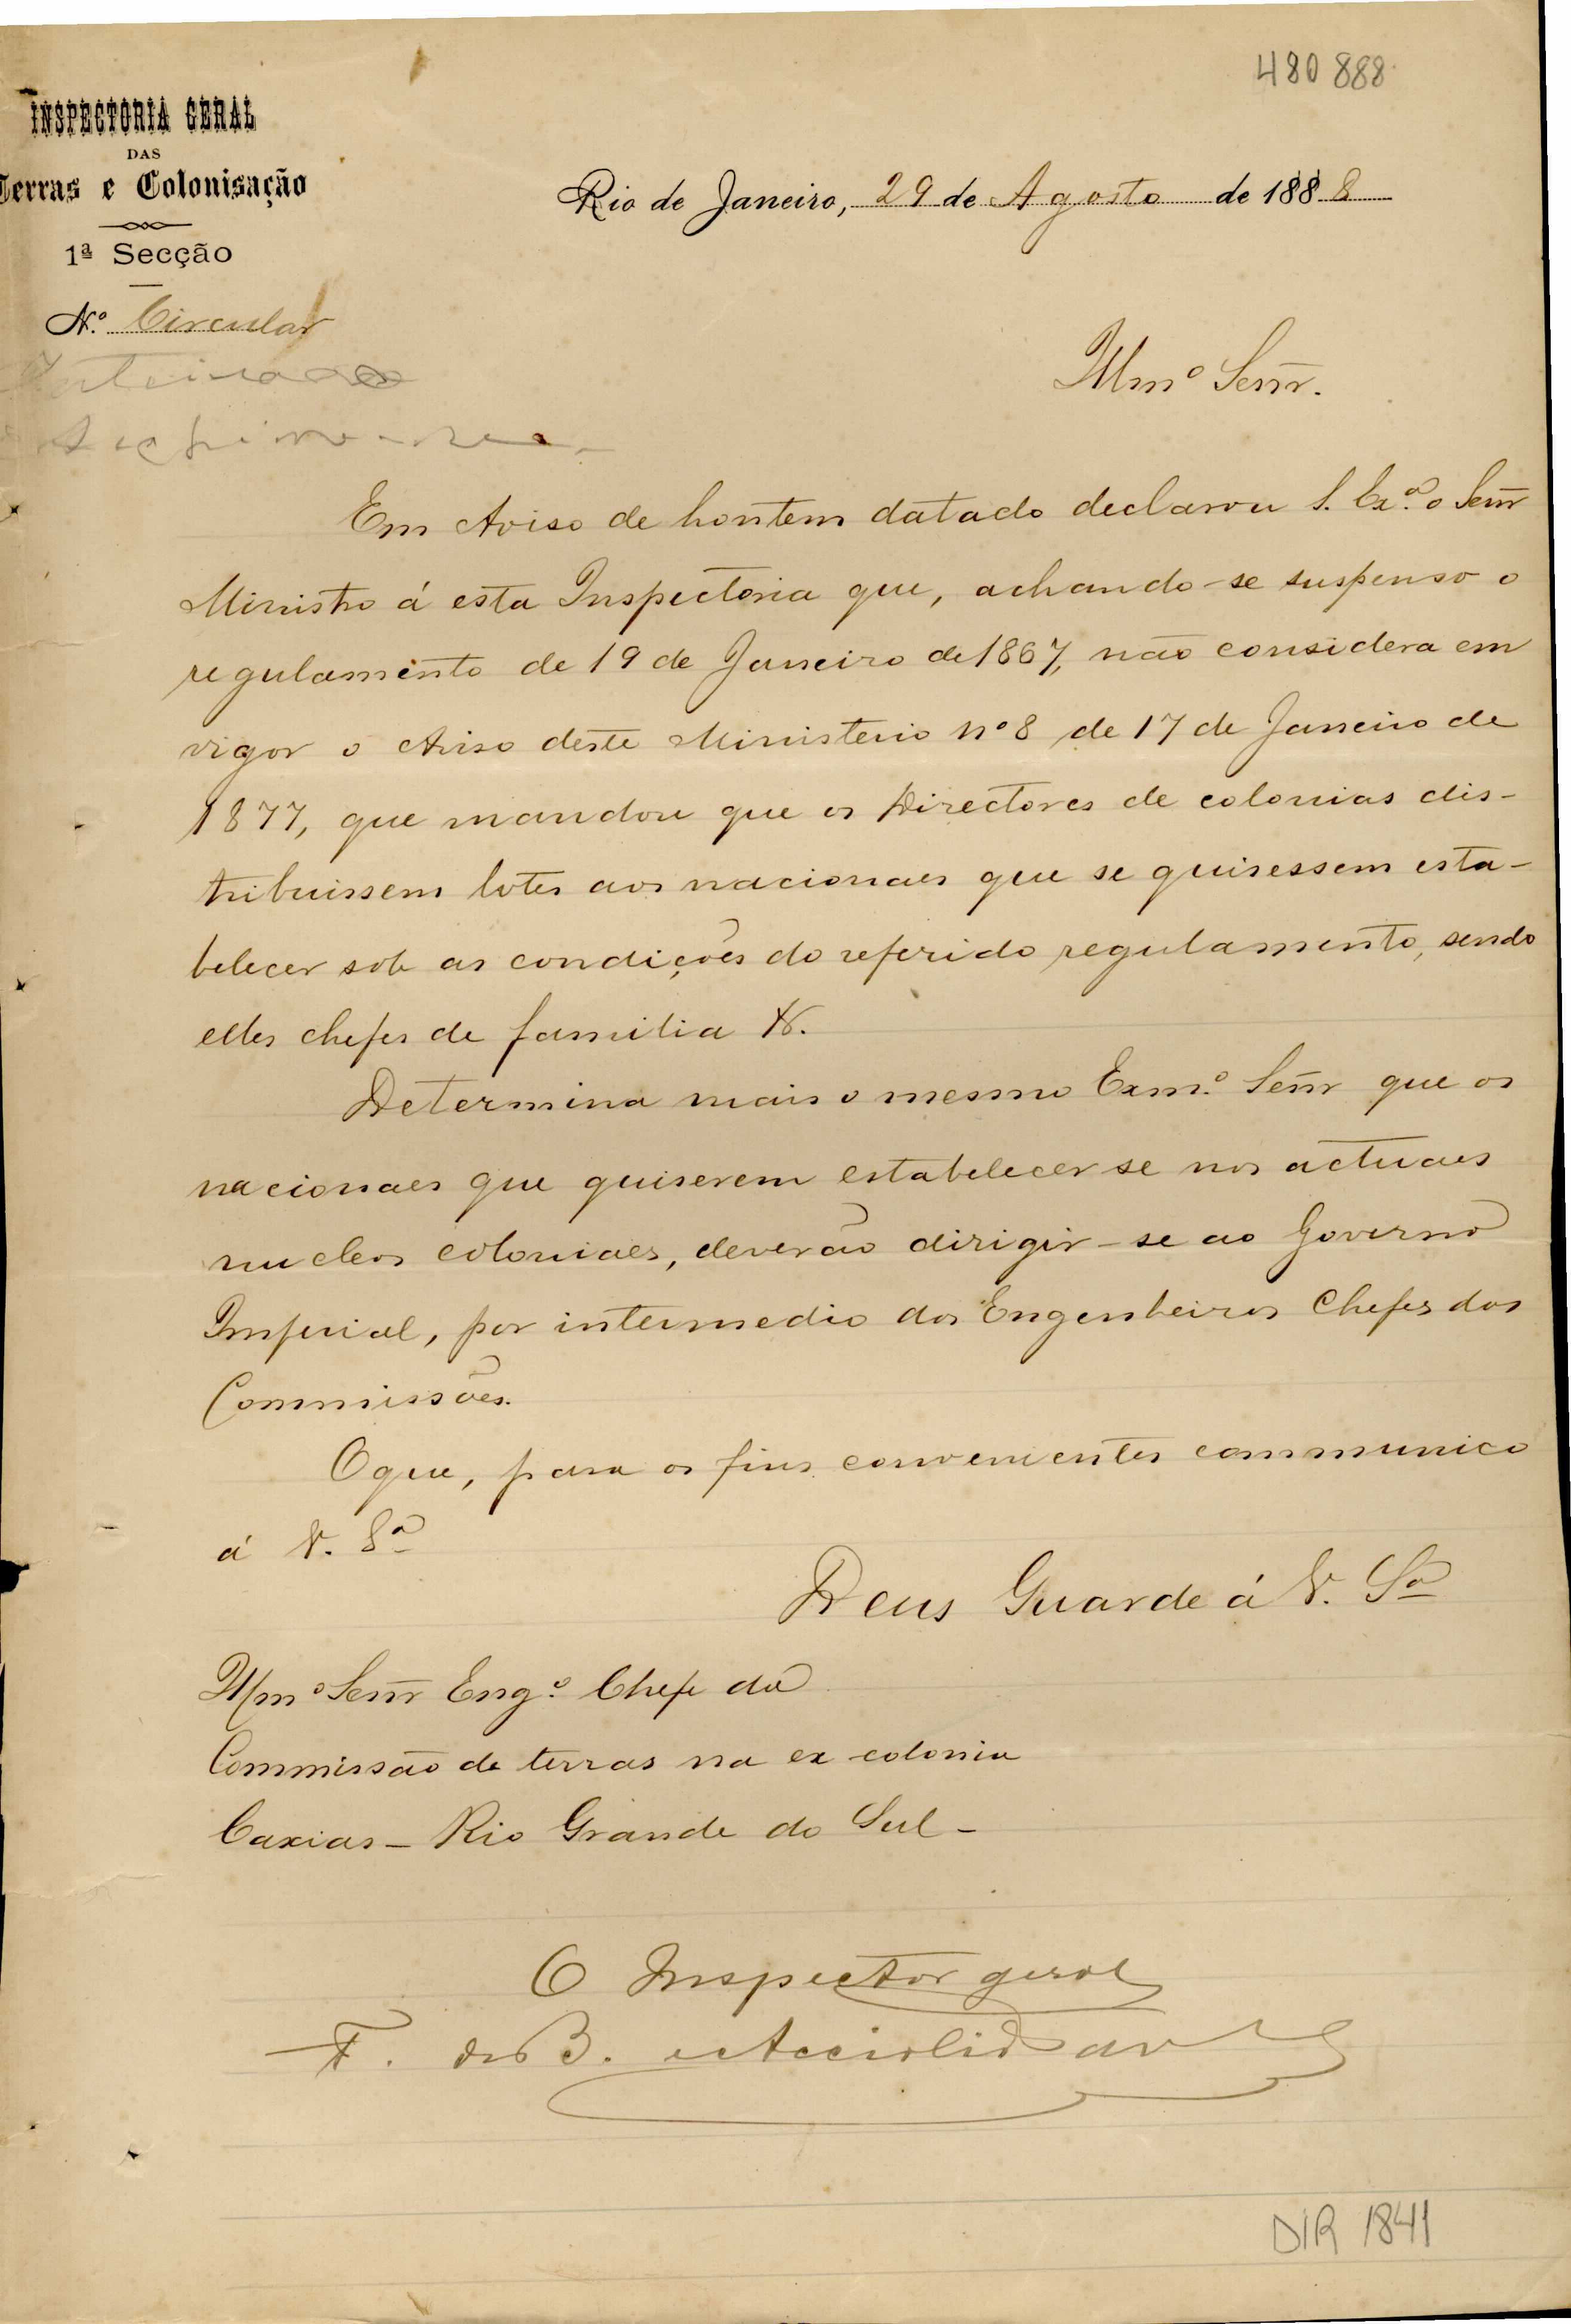 480 888
INSPECTORIA GERAL
DAS
Terras e Colonisação
1ª Secção
Nº Circular
Rio de Janeiro, 29 de Agosto de 1888
Inteirado
Illmº Senr.
Em Aviso de hontem datado declarou S. Exª o Senr
Ministro á esta Inspectoria que, achando-se suspenso o
regulamento de 19 de Janeiro de 1867, não considera em
vigor o Aviso deste Ministerio nº 8 de 17 de Janeiro de
1877, que mandou que os Directores de colonias dis-
tribuissem lotes aos nacionaes que se quisessem esta-
belecer sob as condições do referido regulamento, sendo
elles chefes de familia &.
Determina mais o mesmo Exmº Senr que os
nacionaes que quiserem estabelecer se nos actuaes
nucleos coloniaes, deverão dirigir-se ao Governo
Imperial, por intermedio dos Engenheiros Chefes das
Commissões.
O que, para os fins convenientes communico
á V. Sª
Deus Guarde á V. Sª
Illmº Senr Engº Chefe da
Commissão de terras na ex colonia
Caxias - Rio Grande do Sul -
O Inspector geral
F. de B. e Accioli de
DIR 1841